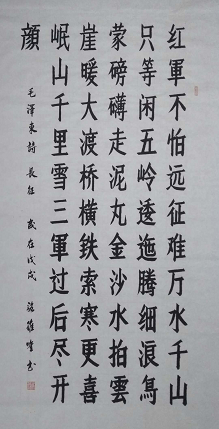 红軍不怕远征难万水千山
只等闲五岭逶迤腾细浪烏
蒙磅礴走泥丸金沙水拍雲
崖暖大渡桥横鉄索寒更喜
岷山千里雪三軍过后尽开
顔
毛泽東詩 長征 歲在戊戌 书